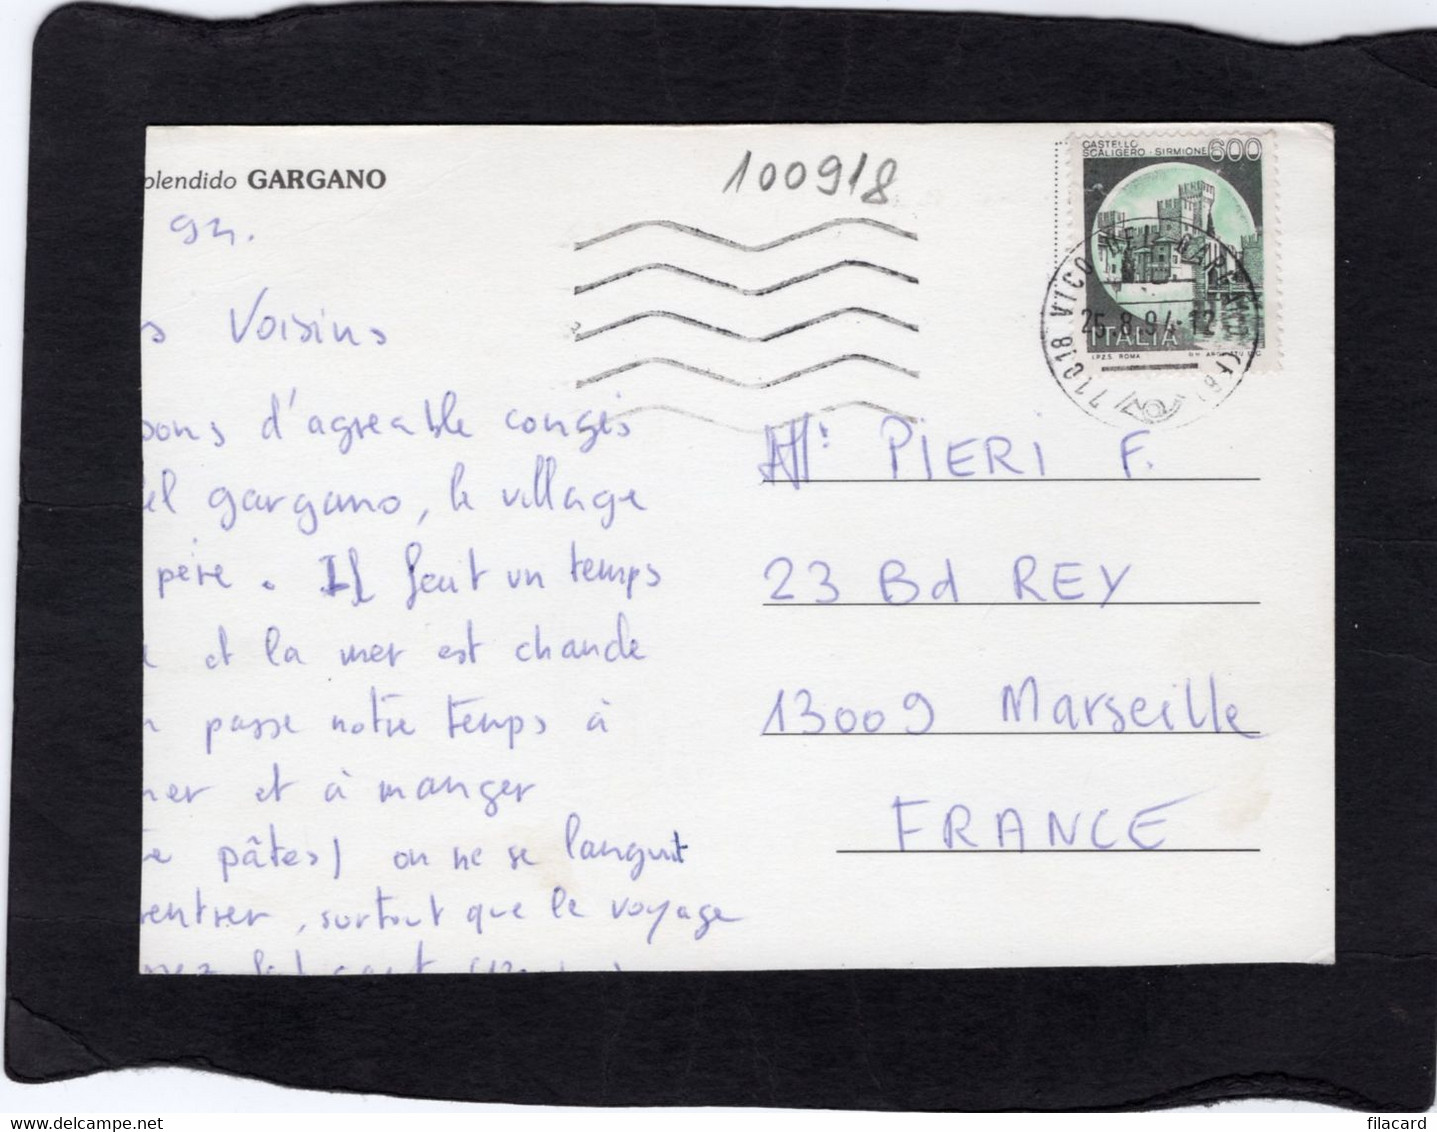 plendido GARGANO
94.
100918
CASTELLO
SCALIGERO - SIRMIONE 600
ITALIA
I.P.Z.S. ROMA
71018 VICO DEL GARGANO (FG)
25.8.94-12
s Voisins
ons d'agreable congés
el gargano, le village
père. Il fait un temps
et la mer est chaude
passe notre temps à
mer et à manger
pâtes) on ne se languit
rentrer, surtout que le voyage
PIERI F.
23 Bd REY
13009 Marseille
FRANCE
filacard